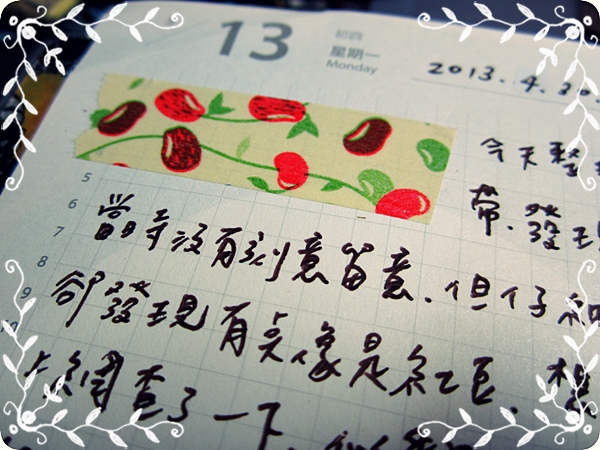 13
初四
星期一
Monday
2013.4.30.
今天整
帶.發現
5
6
當時沒有刻意留意.但仔細
7
8
卻發現有点像是紅豆.想
9
10
上網查了一下.